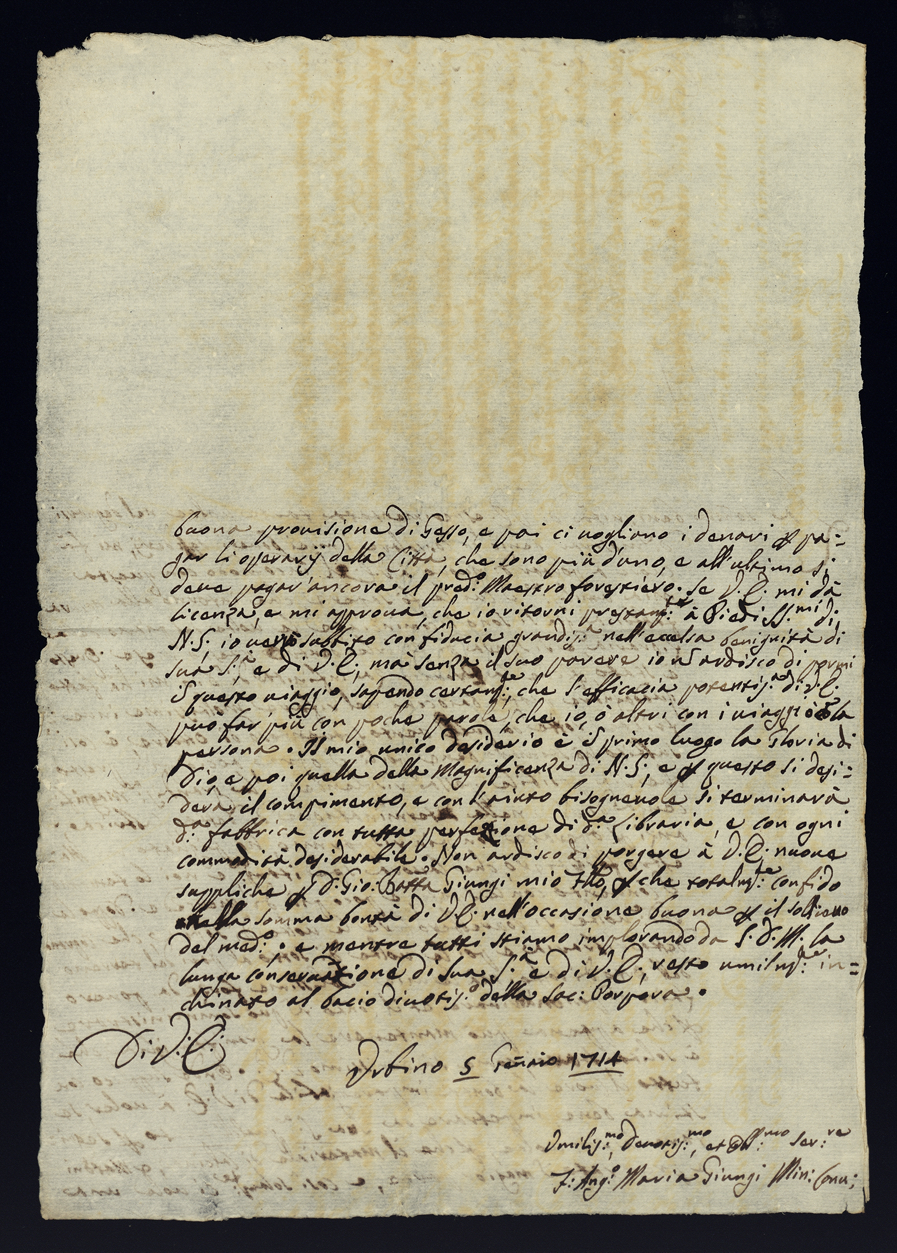 buona provisione di Gesso, e poi ci vogliono i denari p pa=
gar li operarij della Citta, che sono più d'uno, e all'ultimo si
deve pagar'ancora il pred:o Maestro forestiero. Se V.E. mi dà
licenza, e mi approva, che io ritorni prestam:te à Piedi SS:mi di
N.S; io verrò subbito con fiducia grandis:a nell'eccelsa benignità di
sua S:à, e di V.E, mà senza il suo parere io nō ardisco di pormi
ī questo viaggio, sapendo certam:te, che l'efficacia potentis:a di V.E.
può far più con poche parole, che io, ò altri con i viaggi, e la
persona. Il mio unico desiderio è ī primo luogo la Gloria di
Dio, e poi quella della Magnificenza di N.S; e p questo si desi=
dera il compimento, e con l'aiuto bisognevole si terminarà
d:a fabbrica con tutta perfezione di d:a Libraria, e con ogni
commodità desiderabile. Non ardisco di porgere à V.E. nuove
suppliche p D. Gio: Batta Giungi mio fllo, p che totalm:te confido
nella somma bontà di V.E. nell'occasione buona p il sollievo
del med:o. e mentre tutti stiamo implorando da S.D.M. la
lunga conservatione di Sua S:à e di V.E, resto umilm:te in=
chinato al bacio divotis:o della Sac: Porpora.
Di V.E.
Urbino 5 Gēnaio 1714
Umilis:mo, Devotis:mo, et Obl:mo Ser:re
F: Ang:o Maria Giungi Min: Conv;